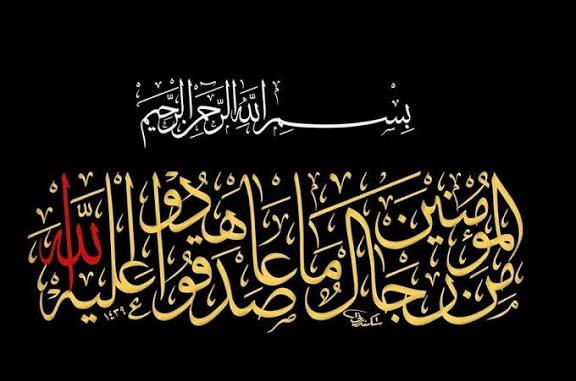 بسم الله الرحمن الرحيم
من المؤمنين رجال صدقوا ما عاهدوا الله عليه
١٤٣٩